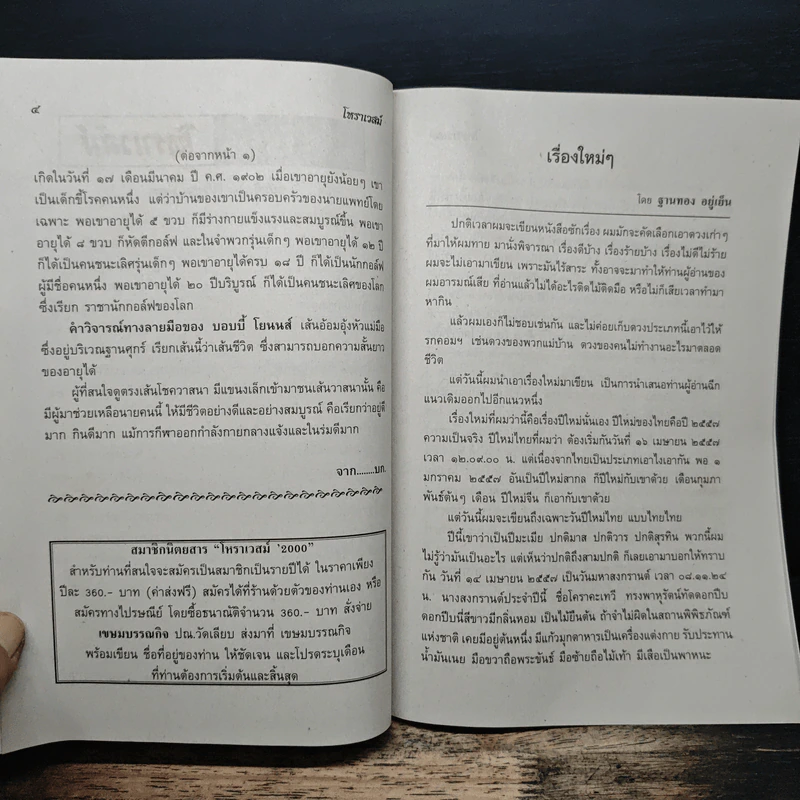 ๔
โหราเวสม์
(ต่อจากหน้า ๑)
เกิดในวันที่ ๑๗ เดือนมีนาคม ปี ค.ศ. ๑๙๐๒ เมื่อเขาอายุยังน้อยๆ เขา
เป็นเด็กขี้โรคคนหนึ่ง แต่ว่าบ้านของเขาเป็นครอบครัวของนายแพทย์โดย
เฉพาะ พอเขาอายุได้ ๕ ขวบ ก็มีร่างกายแข็งแรงและสมบูรณ์ขึ้น พอเขา
อายุได้ ๘ ขวบ ก็หัดตีกอล์ฟ และในจำพวกรุ่นเด็กๆ พอเขาอายุได้ ๑๒ ปี
ก็ได้เป็นคนชนะเลิศรุ่นเด็กๆ พอเขาอายุได้ครบ ๑๘ ปี ก็ได้เป็นนักกอล์ฟ
ผู้มีชื่อคนหนึ่ง พอเขาอายุได้ ๒๐ ปีบริบูรณ์ ก็ได้เป็นคนชนะเลิศของโลก
ซึ่งเรียก ราชานักกอล์ฟของโลก
คำวิจารณ์ทางลายมือของ บอบบี้ โยนนส์ เส้นอ้อมอุ้งหัวแม่มือ
ซึ่งอยู่บริเวณฐานศุกร์ เรียกเส้นนี้ว่าเส้นชีวิต ซึ่งสามารถบอกความสั้นยาว
ของอายุได้
ผู้ที่สนใจดูตรงเส้นโชควาสนา มีแขนงเล็กเข้ามาชนเส้นวาสนานั้น คือ
มีผู้มาช่วยเหลือนายคนนี้ ให้มีชีวิตอย่างดีและอย่างสมบูรณ์ คือเรียกว่าอยู่ดี
มาก กินดีมาก แม้การกีฬาออกกำลังกายกลางแจ้งและในร่มดีมาก
จาก........บก.
สมาชิกนิตยสาร "โหราเวสม์ '2000"
สำหรับท่านที่สนใจจะสมัครเป็นสมาชิกเป็นรายปีได้ ในราคาเพียง
ปีละ 360.- บาท (ค่าส่งฟรี) สมัครได้ที่ร้านด้วยตัวของท่านเอง หรือ
สมัครทางไปรษณีย์ โดยซื้อธนาณัติจำนวน 360.- บาท สั่งจ่าย
เขษมบรรณกิจ ปณ.วัดเลียบ ส่งมาที่ เขษมบรรณกิจ
พร้อมเขียน ชื่อที่อยู่ของท่าน ให้ชัดเจน และโปรดระบุเดือน
ที่ท่านต้องการเริ่มต้นและสิ้นสุด
เรื่องใหม่ๆ
โดย ฐานทอง อยู่เย็น
ปกติเวลาผมจะเขียนหนังสือซักเรื่อง ผมมักจะคัดเลือกเอาดวงเก่าๆ
ที่มาให้ผมทาย มานั่งพิจารณา เรื่องดีบ้าง เรื่องร้ายบ้าง เรื่องไม่ดีไม่ร้าย
ผมจะไม่เอามาเขียน เพราะมันไร้สาระ ทั้งอาจจะมาทำให้ท่านผู้อ่านของ
ผมอารมณ์เสีย ที่อ่านแล้วไม่ได้อะไรติดไม้ติดมือ หรือไม่ก็เสียเวลาทำมา
หากิน
แล้วผมเองก็ไม่ชอบเช่นกัน และไม่ค่อยเก็บดวงประเภทนี้เอาไว้ให้
รกคอมฯ เช่นดวงของพวกแม่บ้าน ดวงของคนไม่ทำงานอะไรมาตลอด
ชีวิต
แต่วันนี้ผมนำเอาเรื่องใหม่มาเขียน เป็นการนำเสนอท่านผู้อ่านฉีก
แนวเดิมออกไปอีกแนวหนึ่ง
เรื่องใหม่ที่ผมว่านี้คือเรื่องปีใหม่นั่นเอง ปีใหม่ของไทยคือปี ๒๕๕๗
ความเป็นจริง ปีใหม่ไทยที่ผมว่า ต้องเริ่มกันวันที่ ๑๖ เมษายน ๒๕๕๗
เวลา ๑๒.๐๙.๐๐ น. แต่เนื่องจากไทยเป็นประเภทเอาไงเอากัน พอ ๑
มกราคม ๒๕๕๗ อันเป็นปีใหม่สากล ก็ปีใหม่กับเขาด้วย เดือนกุมภา
พันธ์ต้นๆ เดือน ปีใหม่จีน ก็เอากับเขาด้วย
แต่วันนี้ผมจะเขียนถึงเฉพาะวันปีใหม่ไทย แบบไทยไทย
ปีนี้เขาว่าเป็นปีมะเมีย ปกติมาส ปกติวาร ปกติสุรทิน พวกนี้ผม
ไม่รู้ว่ามันเป็นอะไร แต่เห็นว่าปกติถึงสามปกติ ก็เลยเอามาบอกให้ทราบ
กัน วันที่ ๑๔ เมษายน ๒๕๕๗ เป็นวันมหาสงกรานต์ เวลา ๐๘.๑๑.๒๔
น. นางสงกรานต์ประจำปีนี้ ชื่อโคราคะเทวี ทรงพาหุรัดทัดดอกปีบ
ดอกปีบนี่สีขาวมีกลิ่นหอม เป็นไม้ยืนต้น ถ้าจำไม่ผิดในสถานพิพิธภัณฑ์
แห่งชาติ เคยมีอยู่ต้นหนึ่ง มีแก้วมุกดาหารเป็นเครื่องแต่งกาย รับประทาน
น้ำมันเนย มือขวาถือพระขันธ์ มือซ้ายถือไม้เท้า มีเสือเป็นพาหนะ